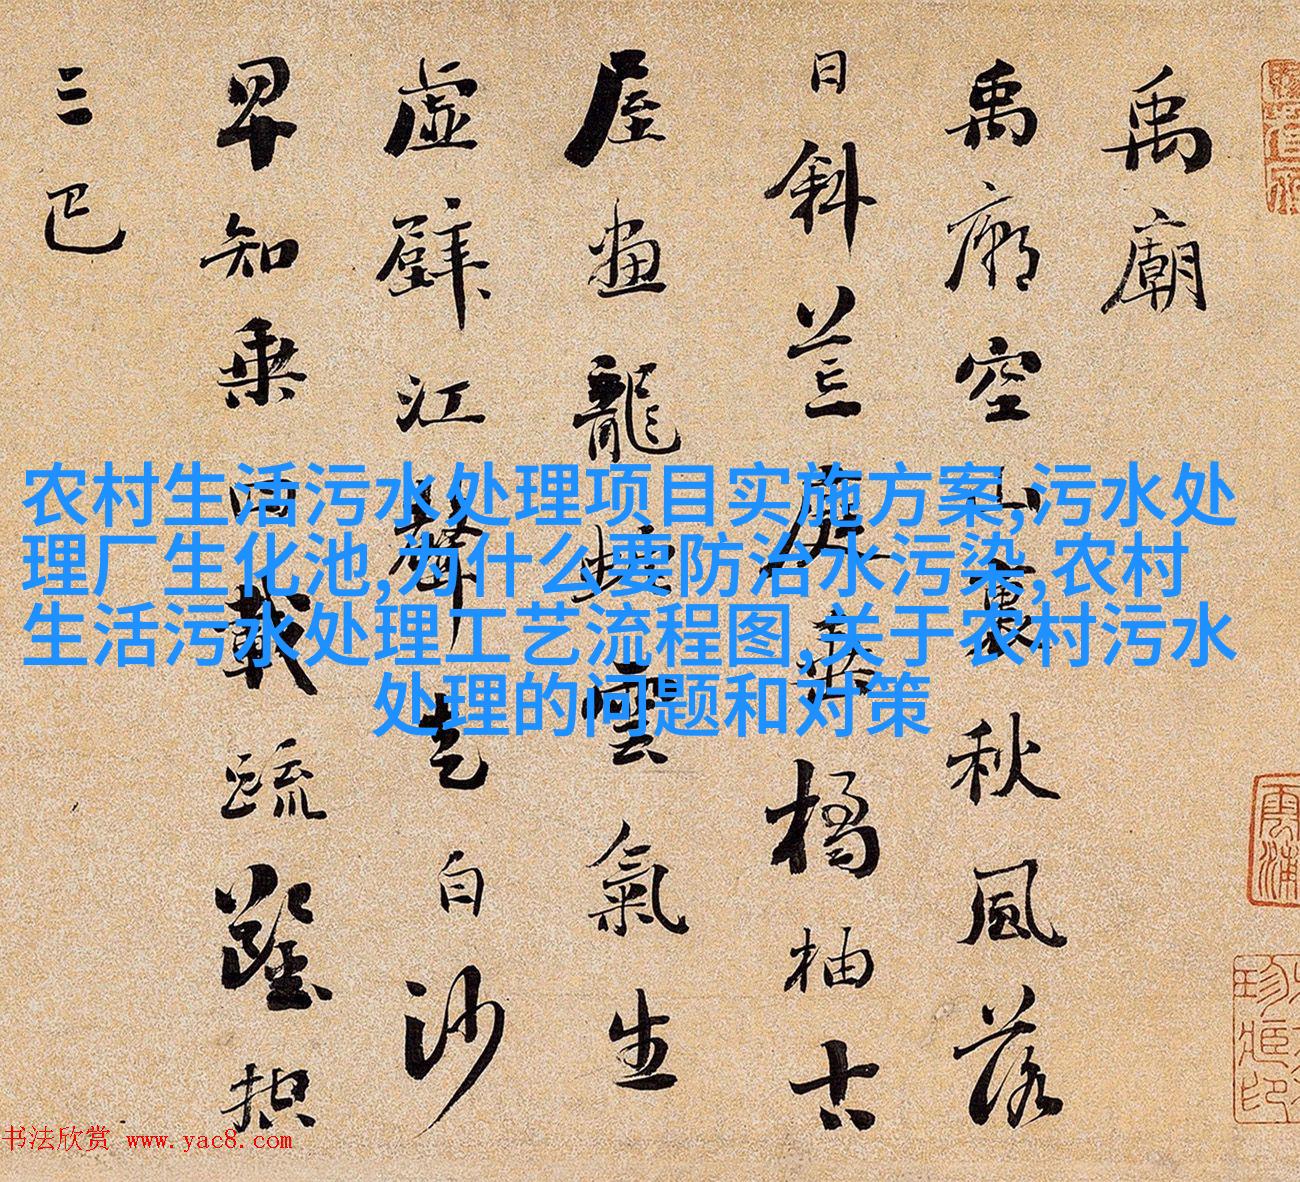 禹廟
禹廟空山裏秋風落
日斜荒庭垂橘柚古
屋畫龍蛇雲氣生
虛壁江聲走白沙
早知乘四載疏鑿控
三巴
农村生活污水处理项目实施方案,污水处
理厂生化池,为什么要防治水污染,农村
生活污水处理工艺流程图,关于农村污水
处理的问题和对策
书法欣赏 www.yac8.com